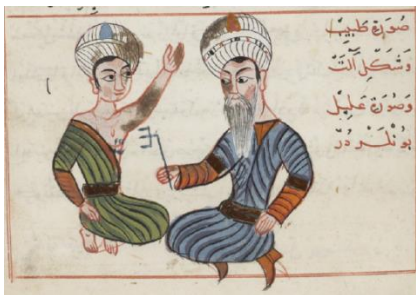 صورت طبيب
وشكل آلت
وصورت عليل
بونلر در